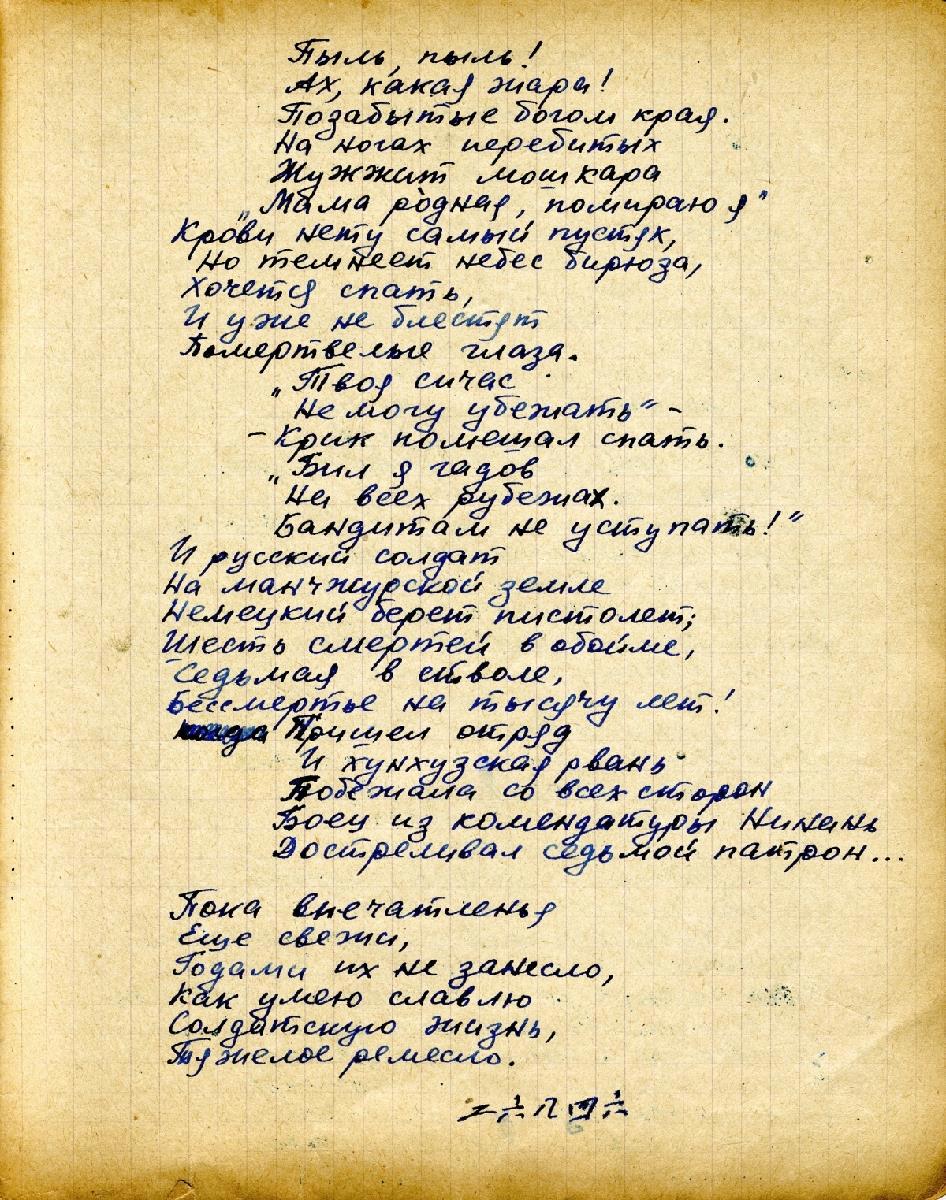 Пыль, пыль!
Ах, какая жара!
Позабытые богом края.
На ногах перебитых
Жужжит мошкара
„Мама родная, помираю я“
Крови нету самый пустях,
Но темнеет небес бирюза,
Хочется спать,
И уже не блестят
Помертвелые глаза.
„Твоя сичас
Не могу убежать“ –
– Крик помешал спать.
„Бил я гадов
На всех рубежах.
Бандитам не уступать!“
И русский солдат
На манчжурской земле
Немецкий берет пистолет;
Шесть смертей в обойме,
Седьмая в стволе,
Бессмертье на тысячу лет!
Пришел отряд
И хунхузская рвань
Побежала со всех сторон
Боец из комендатуры Нинань
Достреливал седьмой патрон...
Пока впечатленья
Еще свежи,
Годами их не занесло,
Как умею славлю
Солдатскую жизнь,
Тяжелое ремесло.